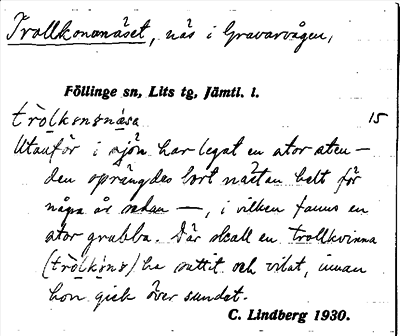 Trollkonanäset, näs i Gravarvågen,
Föllinge sn, Lits tg, Jämtl. l.
trolkonsnäsa 15
Utanför i sjön har legat en stor sten —
den sprängdes bort nästan helt för
några år sedan —, i vilken fanns en
stor grubba. Där skall en trollkvinna
(trolkons) ha suttit och vilat, innan
hon gick över sundet.
C. Lindberg 1930.